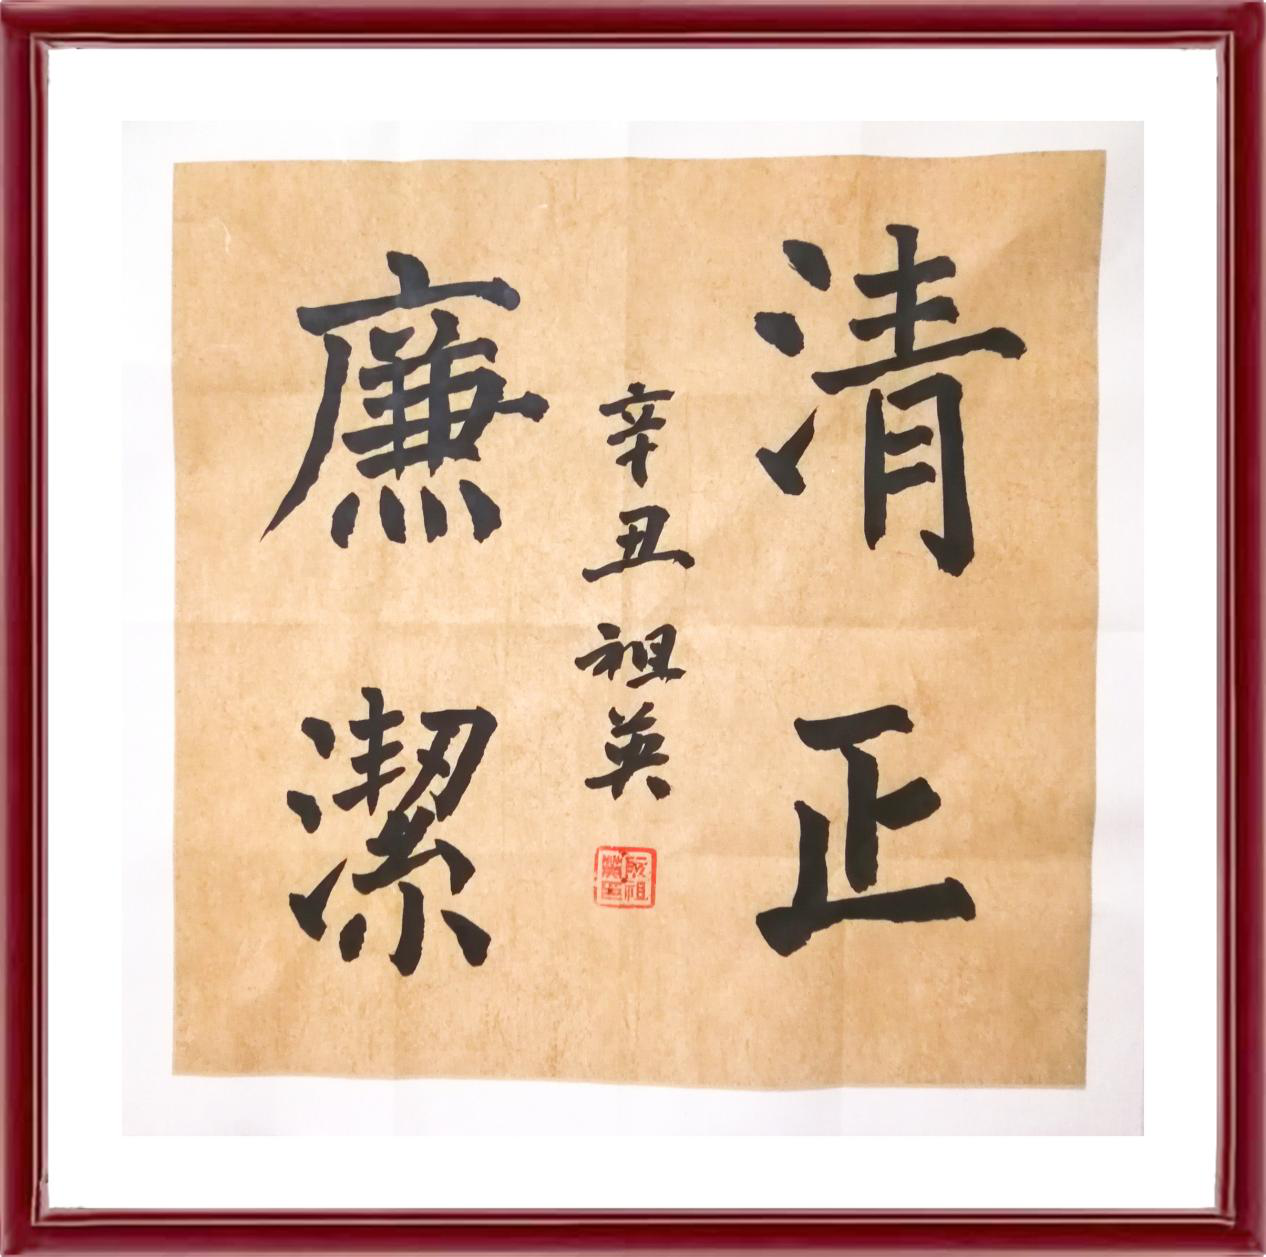 清正
廉潔
辛丑祖英